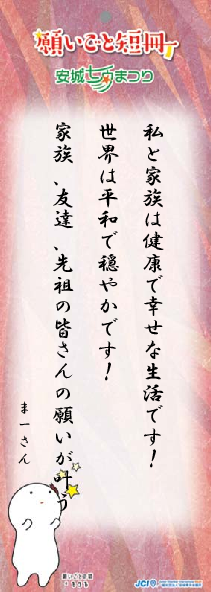 願いごと短冊
安城七夕まつり
私と家族は健康で幸せな生活です!
世界は平和で穏やかです!
家族、友達、先祖の皆さんの願いが叶う
まーさん
願いごと短冊
JCI